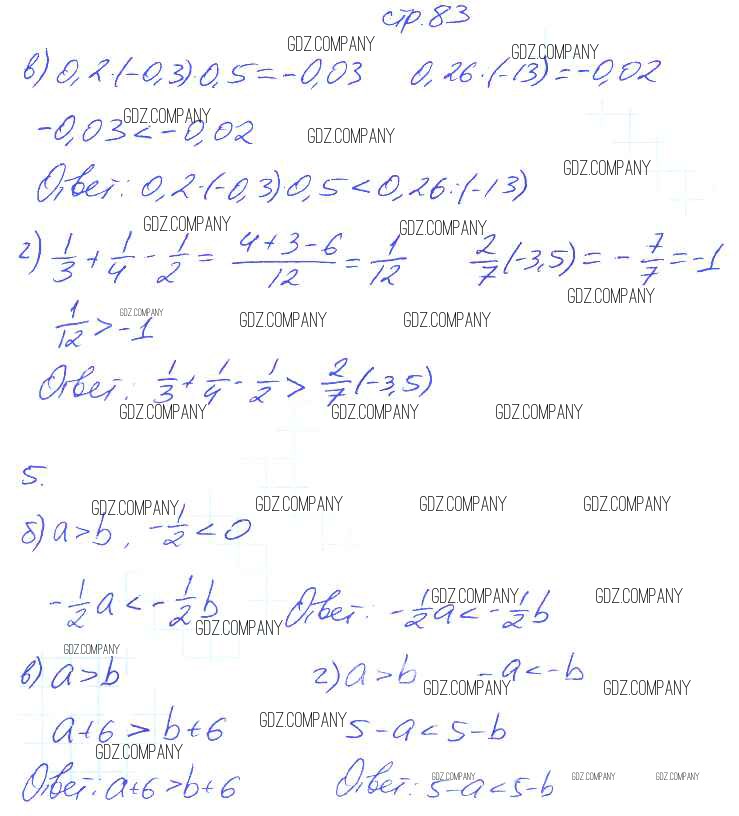 стр. 83
GDZ.COMPANY GDZ.COMPANY
в) 0,2·(-0,3)·0,5=-0,03 0,26·(-13)=-0,02
GDZ.COMPANY
-0,03<-0,02 GDZ.COMPANY
GDZ.COMPANY
Ответ: 0,2·(-0,3)·0,5<0,26:(-13)
GDZ.COMPANY GDZ.COMPANY
г) 1/3 + 1/4 - 1/2 = (4+3-6)/12 = 1/12 2/7(-3,5) = -7/7 = -1
GDZ.COMPANY
1/12 > -1 GDZ.COMPANY GDZ.COMPANY GDZ.COMPANY
Ответ: 1/3 + 1/4 - 1/2 > 2/7(-3,5)
GDZ.COMPANY GDZ.COMPANY GDZ.COMPANY
5.
GDZ.COMPANY GDZ.COMPANY GDZ.COMPANY GDZ.COMPANY
б) a>b, -1/2<0
GDZ.COMPANY GDZ.COMPANY
-1/2a<-1/2b Ответ: -1/2a<-1/2b
GDZ.COMPANY
GDZ.COMPANY
в) a>b г) a>b -a<-b
GDZ.COMPANY GDZ.COMPANY
a+6>b+6 GDZ.COMPANY 5-a<5-b
GDZ.COMPANY
Ответ: a+6>b+6 Ответ: 5-a<5-b
GDZ.COMPANY GDZ.COMPANY GDZ.COMPANY